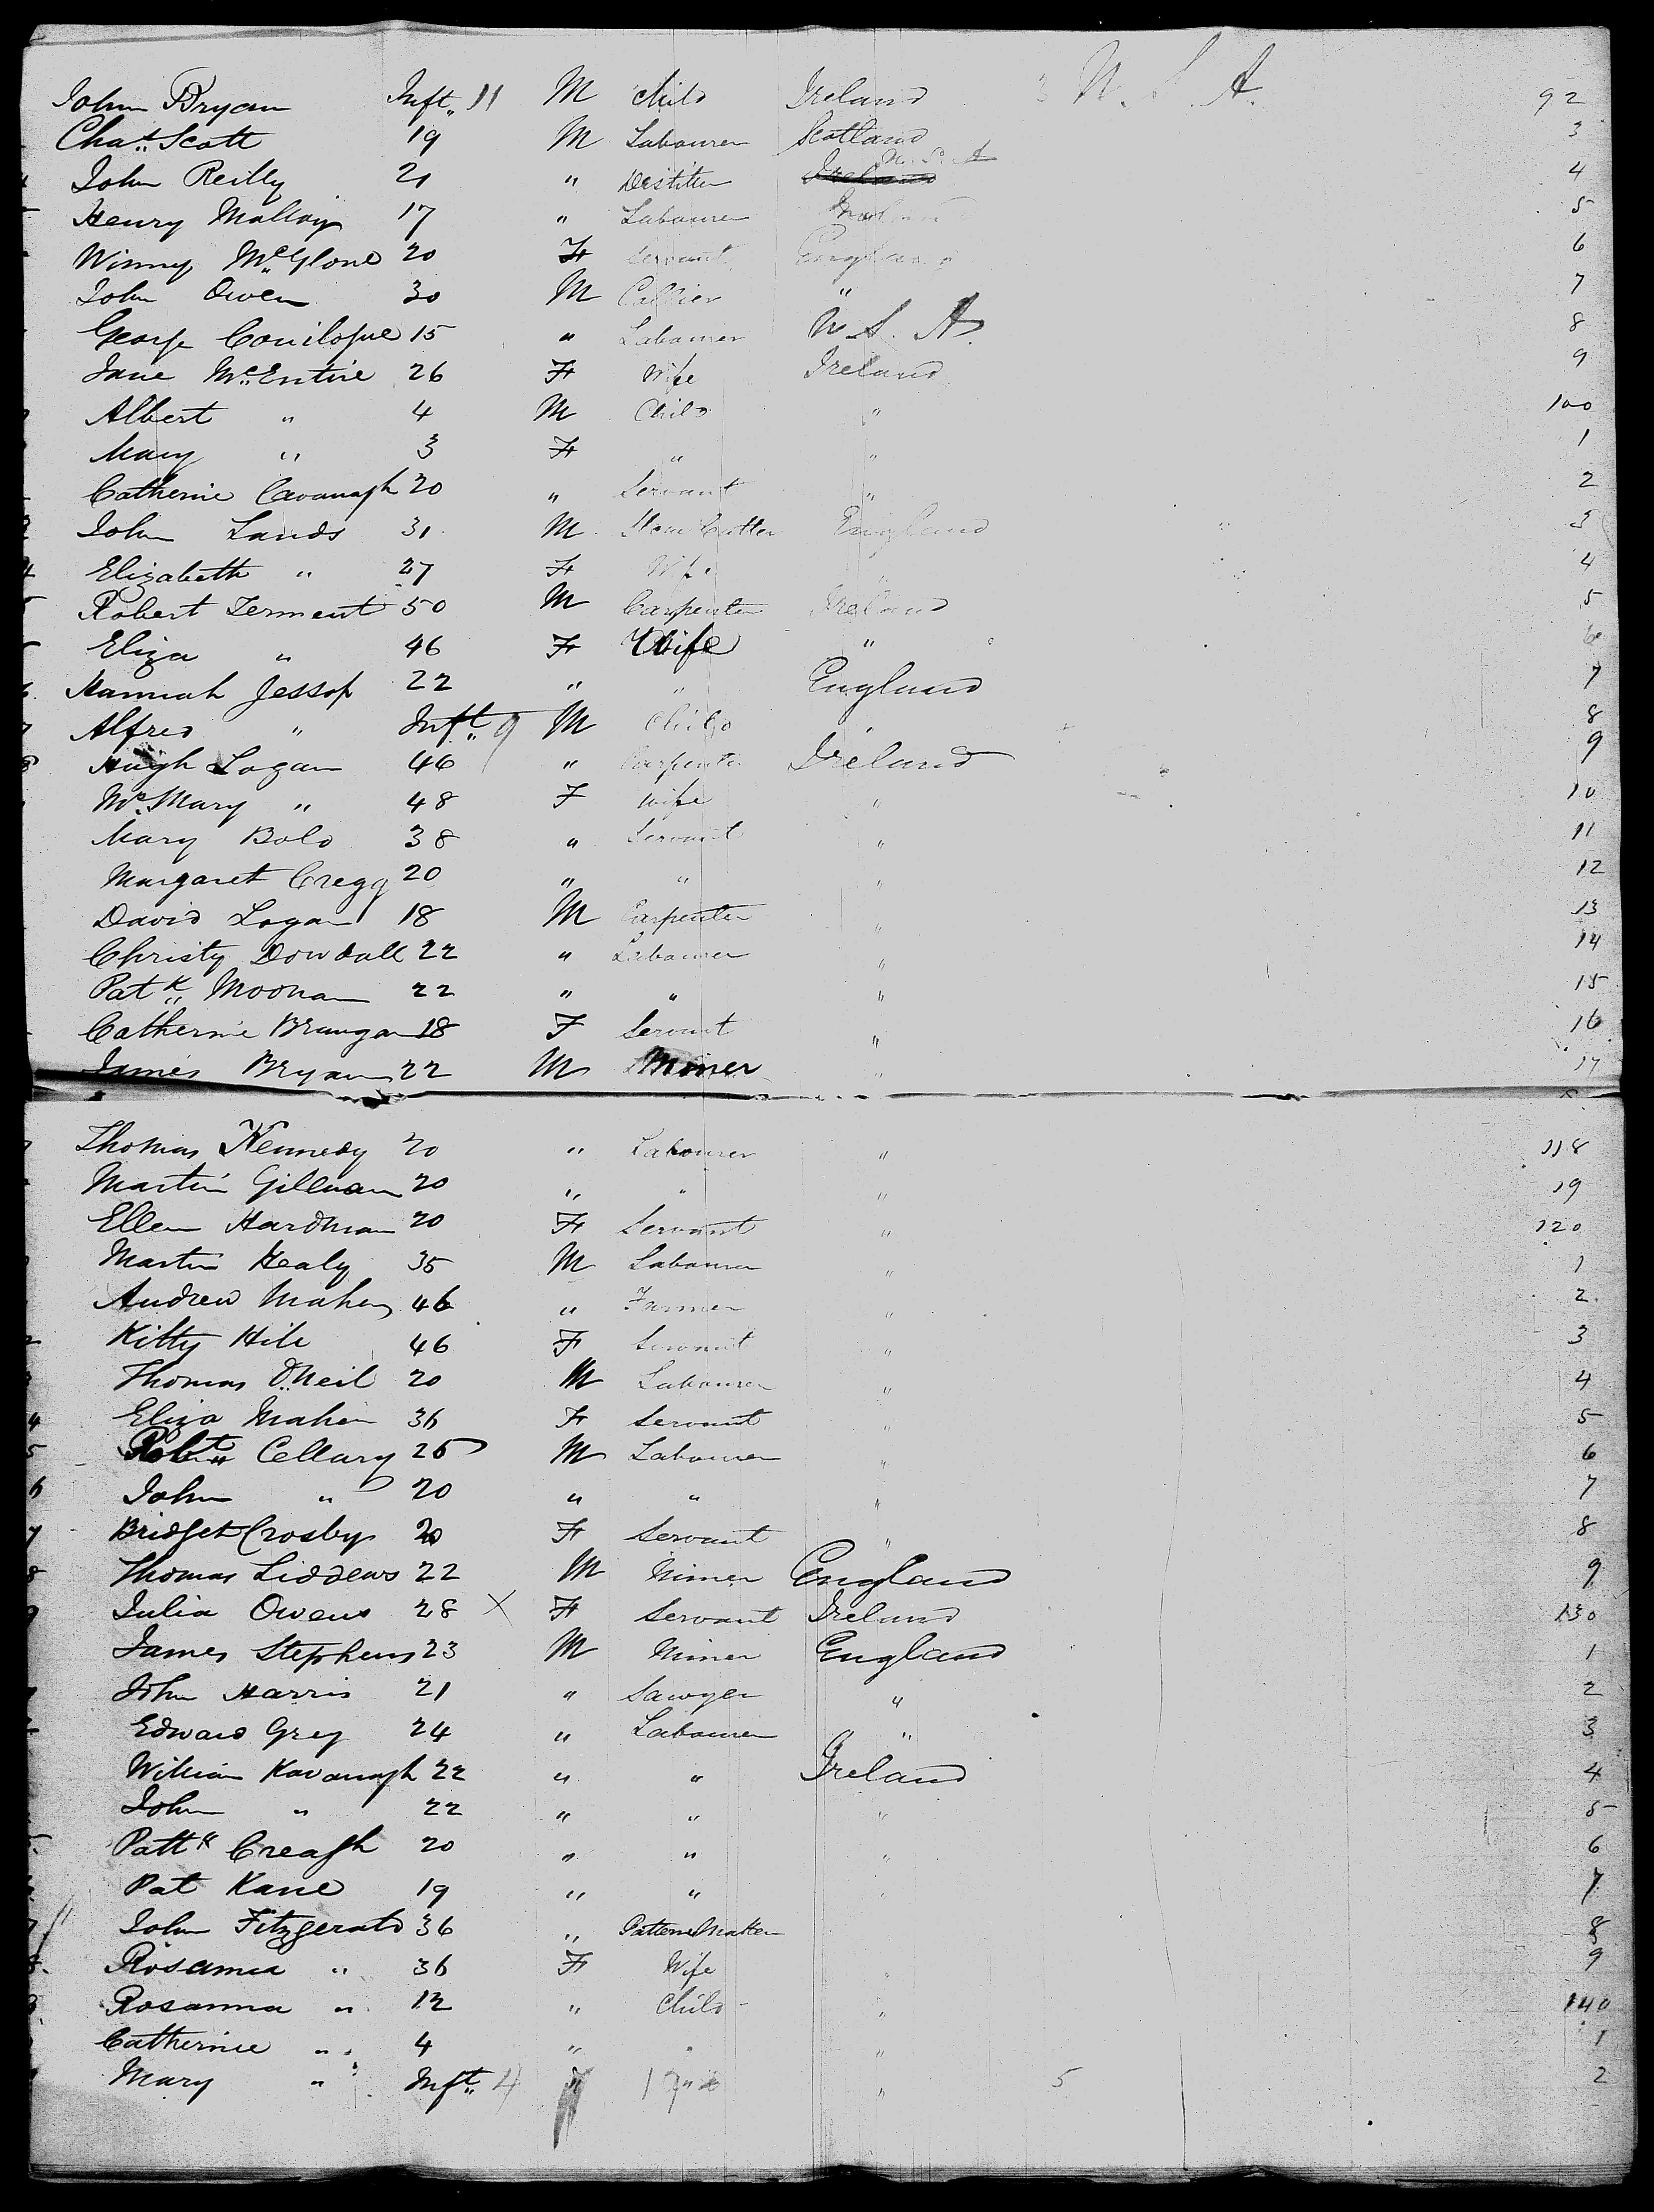 John Bryan Inft. 11 M Child Ireland 3 U. S. A. 92
Chas. Scott 19 M Labourer Scotland 3
John Reilly 21 " Distiller Ireland U. S. A 4
Henry Malloy 17 " Labourer 5
Winny McGlone 20 F Servant England 6
John Owen 30 M Collier " 7
George 15 " Labourer U. S. A. 8
Jane McEntire 26 F Wife Ireland 9
Albert " 4 M Child " 100
Mary " 3 F " " 1
Catherine Cavanagh 20 " Servant " 2
John Lands 31 M Stone Cutter England 3
Elizabeth " 27 F Wife " 4
Robert Terment 50 M Carpenter Ireland 5
Eliza " 46 F Wife " 6
Hannah Jessop 22 " " England 7
Alfred " Inft. 9 M Child " 8
Hugh Logan 46 " Carpenter Ireland 9
Mary " 48 F Wife " 10
Mary Bold 38 " Servant " 11
Margaret Cregg 20 " " " 12
David Logan 18 M Carpenter " 13
Christy Dowdall 22 " Labourer " 14
Patk. Moonan 22 " " " 15
Catherine Brangan 18 F Servant " 16
James Bryan 22 M Miner " 17
Thomas Kennedy 20 " Labourer " 118
Martin Gillman 20 " " " 19
Ellen Hardman 20 F Servant " 120
Martin Healy 35 M Labourer " 1
Andrew Maher 46 " Farmer " 2
Kitty Hile 46 F Servant " 3
Thomas O'Neil 20 M Labourer " 4
Eliza Maher 36 F Servant " 5
Robt. Cellary 25 M Labourer " 6
John " 20 " " " 7
Bridget Crosby 20 F Servant " 8
Thomas Liddews 22 M Miner England 9
Julia Owens 28 X F Servant Ireland 130
James Stephens 23 M Miner England 1
John Harris 21 " Sawyer " 2
Edward Grey 24 " Labourer " 3
William Kavanagh 22 " " Ireland 4
John " 22 " " " 5
Pattk Creagh 20 " " " 6
Pat Kane 19 " " " 7
John Fitzgerald 36 " Pattern Maker 8
Rosanna " 36 F Wife " 9
Rosanna " 12 " Child " 140
Catherine " 4 " " " 1
Mary " Inft. 4 " " " 5 2